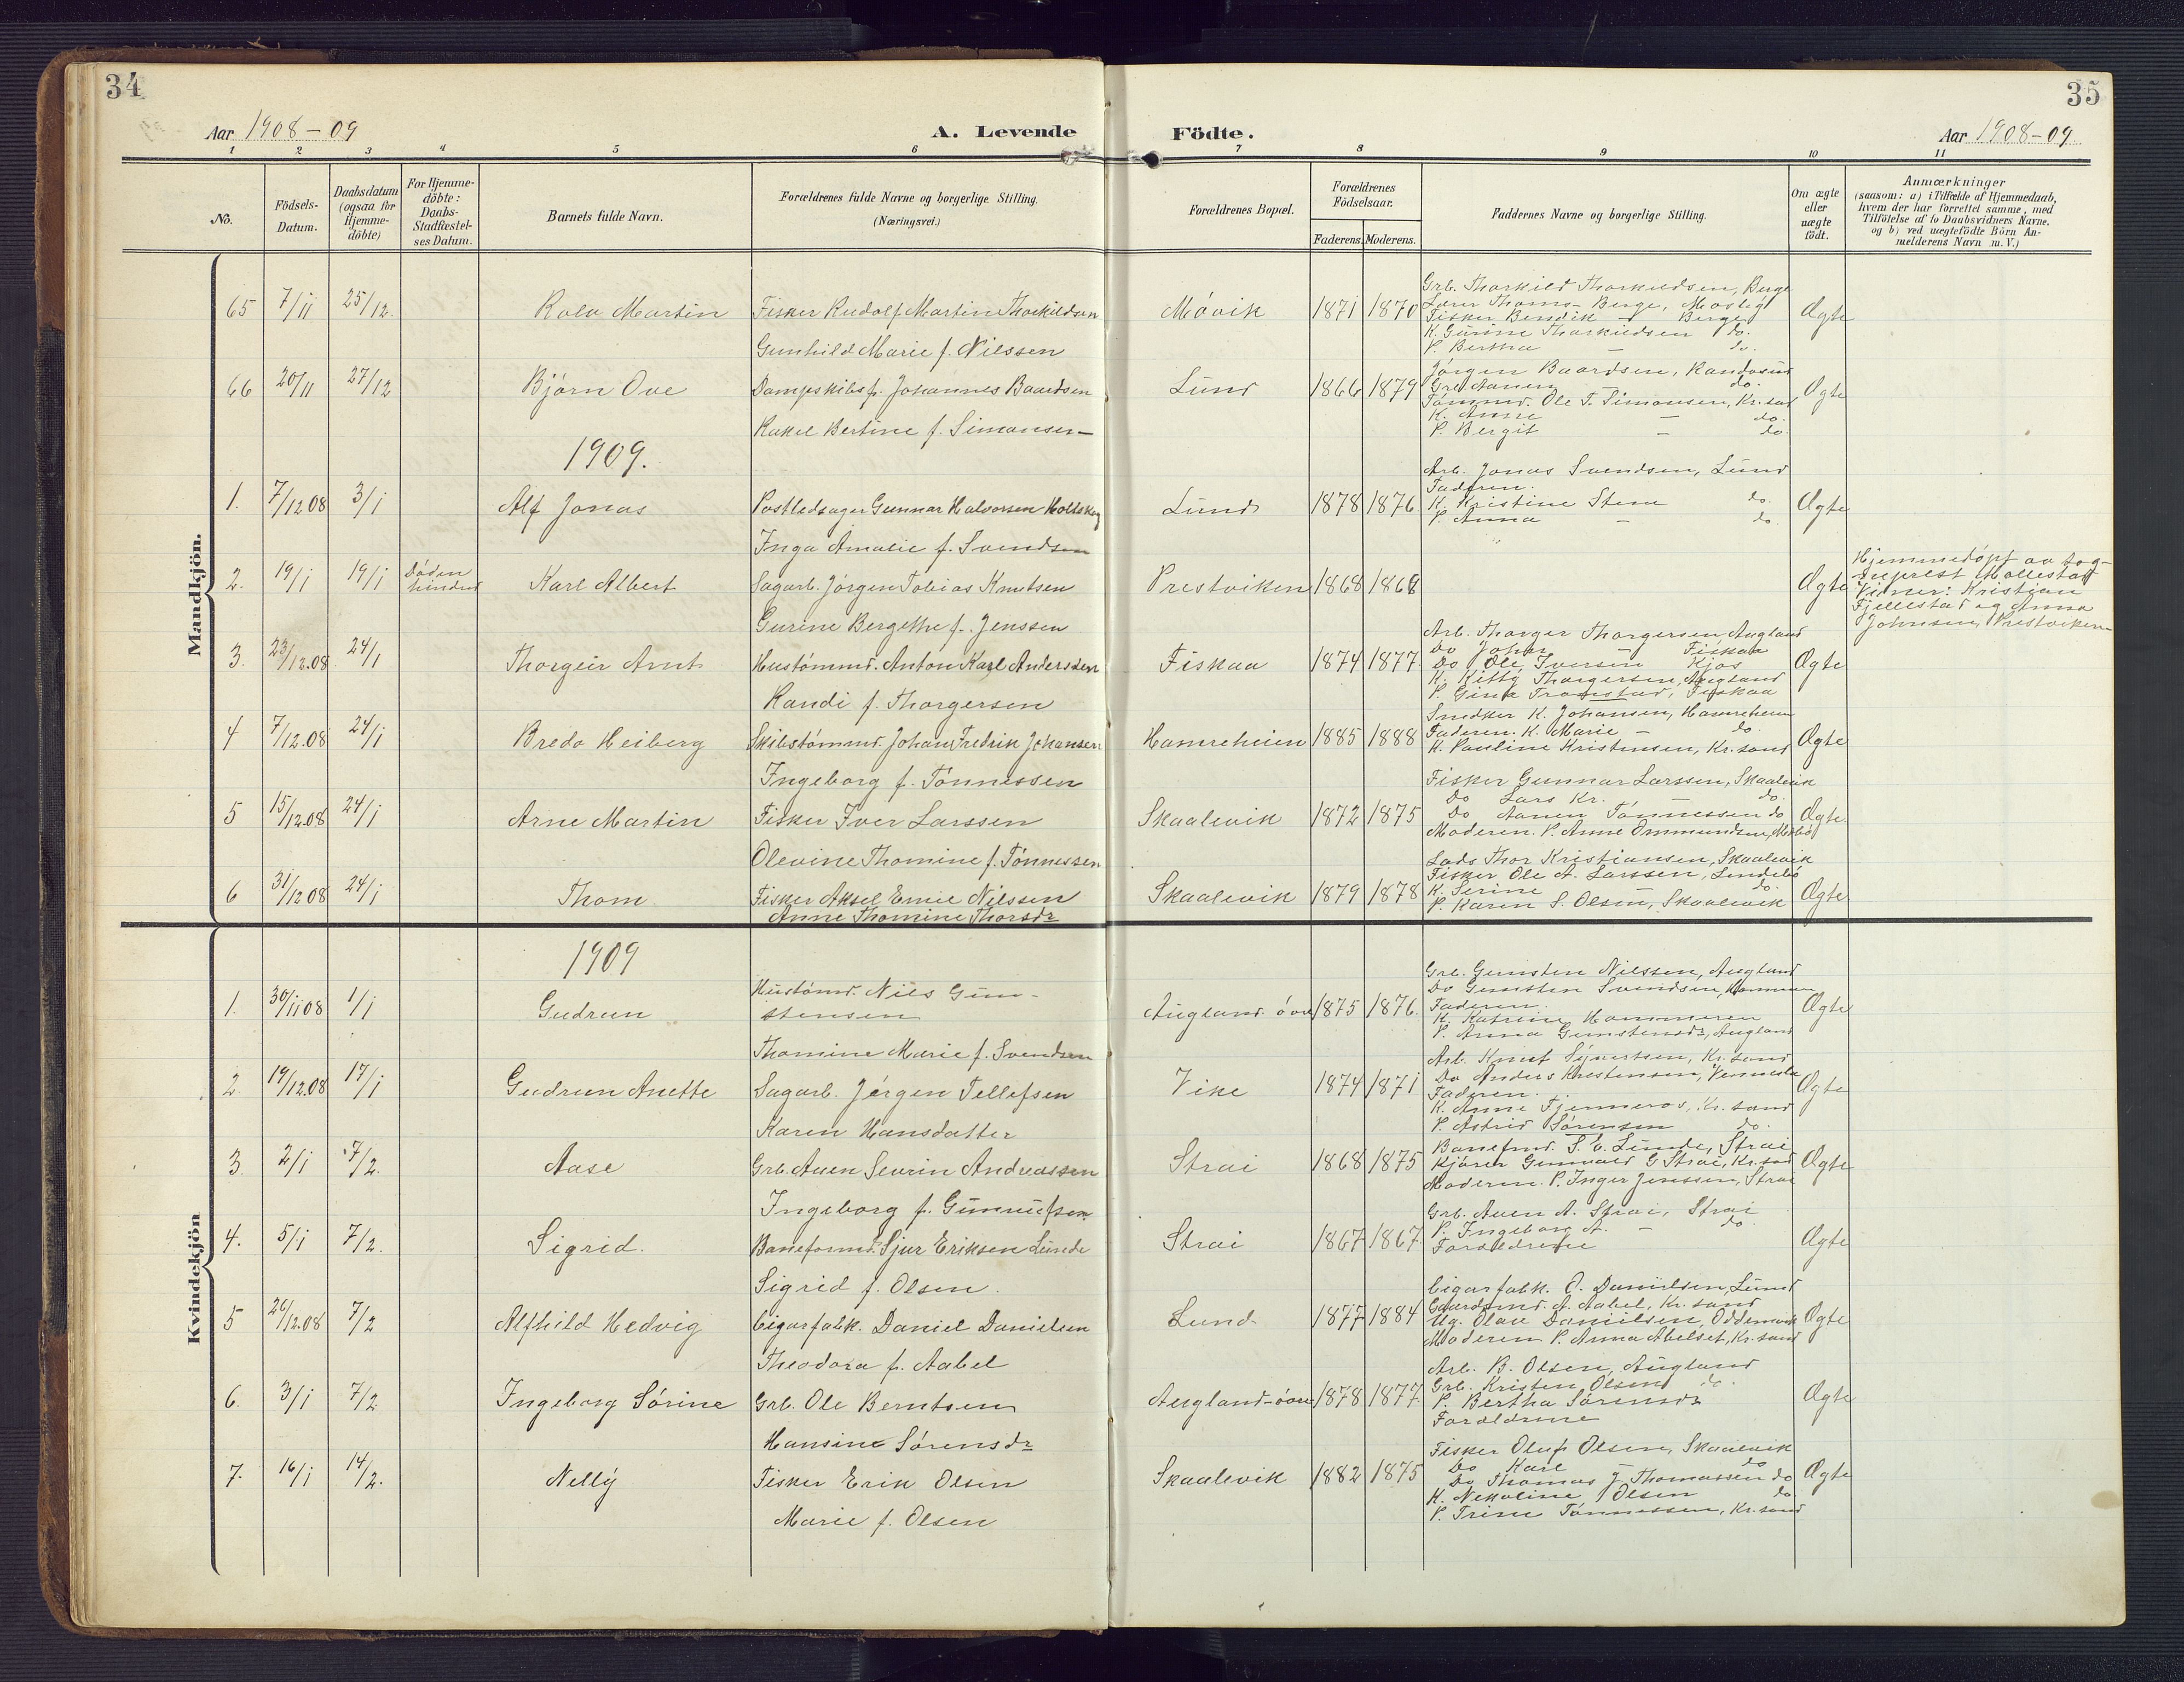 34
35
Aar 1908-09
A. Levende
Födte.
Aar 1908-09.
1 2 3 4 5 6 7 8 9 10 11
No.
Födsels-
Datum.
Daabsdatum
(ogsaa for
Hjemme-
döbte)
For Hjemme-
döbte:
Daabs-
Stadfæstel-
ses Datum.
Barnets fulde Navn.
Forældrenes fulde Navne og borgerlige Stilling.
(Næringsvei.)
Forældrenes Bopæl.
Forældrenes
Födselsaar.
Faderens. Moderens.
Faddernes Navne og borgerlige Stilling.
Om ægte
eller
uægte
födt.
Anmærkninger
(saasom: a) i Tilfælde af Hjemmedaab,
hvem der har forrettet samme, med
Tilföielse af to Daabsvidners Navne.
og b) ved uægtefödte Börn An-
melderens Navn m. V.)
Mandkjön.
65 7/11 25/12. Rolv Martin Fisker Rudolf Martin Thorkildsen
Gunhild Marie f. Nilssen
Móvik 1871 1870
Grb. Thorkild Thorkildsen, Berge
Lærer Thoms - Berge, Mosby
Fisker Bendik - Berge
K. Gurine Thorkildsen do.
P. Bertha - do.
Ægte
66 20/11 27/12 Bjórn Ove Dampskibsf. Johannes Baardsen
Rakel Bertine f. Simonsen
Lund 1866 1879
Jórgen Baardsen, Randosund
Grb. Aanen - do.
Tómmd. Ole T. Simonsen, Kr.sand
K. Anne - do.
P. Bergit - do.
Ægte
1909.
1. 7/12 08 3/1 Alf Jonas Postledsager Gunnar Halvorsen Holtskog
Inga Amalie f. Svendsen
Lund 1878 1876
Arb. Jonas Svendsen, Lund
Faderen.
K. Kristine Steen do.
P. Anna - do.
Ægte
2. 19/1 19/1 Dóden hindred Karl Albert Sagarb. Jórgen Tobias Knutsen
Gurine Bergithe f. Jenssen
Prestviken 1868 1868
Ægte
Hjemmedópt av sog-
neprest Mollestad
Vidner: Kristian
Fjellestad og Anna
Johnsen, Prestviken
3. 23/12.08 24/1 Thorgeir Arnt Hustómmd. Anton Karl Anderssen
Randi f. Thorgersen
Fiskaa 1874 1877
Arb. Thorger Thorgersen, Augland
Do Johan - Fiskaa
Do Ole Iversen Kjos
K. Kitty Thorgersen, Augland
P. Gina Tromstad, Fiskaa
Ægte
4 7/12.08 24/1 Bredo Heiberg Skibstómmd. Johan Fredrik Johansen
Ingeborg f. Tónnessen
Hamreheien 1885 1888
Snedker K. Johansen, Hamreheien
Faderen. K. Marie - do.
K. Pauline Kristensen, Kr.sand
Ægte
5 15/12.08 24/1 Arne Martin Fisker Iver Larssen
Olevine Thomine f. Tónnessen
Skaalevik 1872 1875
Fisker Gunnar Larssen, Skaalevik
Do Lars Kr. - do.
Do Aanen Tónnessen do
Moderen. P. Anne Ommundsen,
Ægte.
6 31/12 08 24/1 Thom Fisker Aksel Emil Nilssen
Anne Thomine Thorsdr
Skaalevik 1879 1878
Lods Thor Kristiansen, Skaalevik
Fisker Ole A. Larssen, Lindebó
K. Serine - do.
P. Karen S. Olsen, Skaalevik
Ægte
Kvindekjön
1909
1. 30/11 08 1/1 Gudrun Hustómd. Nils Gun-
stensen
Thomine Marie f. Svendsen
Augland óvre 1875 1876.
Grb. Gunsten Nilssen, Augland
Do Gunsten Svendsen, Hammeren
Faderen.
K. Katrine Hammeren
P. Anna Gunstensdr, Augland
Ægte
2. 19/12.08 17/1 Gudrun Anette Sagarb. Jórgen Tellefsen
Karen Hansdatter
Vike 1874 1871
Arb. Knut Syvertsen, Kr.sand
Do Anders Kristensen, Vennesla
Faderen.
K. Anne Fjermeros, Kr.sand
P. Astrid Sórensen do.
Ægte
3. 2/1 7/2. Aase Grb. Auen Sevrin Andreassen
Ingeborg f. Gunnufsen
Strai 1868 1875
Baneformd. S. E. Lunde, Strai
Kjórer Gunvald G Strai, Kr.sad
Moderen. P. Inger Jenssen, Strai
Ægte
4. 5/1 7/2. Sigrid. Baneformd. Sjur Eriksen Lunde
Sigrid f. Olsen.
Strai 1867 1867.
Grb. Auen A. Strai, Strai
P. Ingeborg A. - do.
Forældrene
Ægte
5 26/12.08 7/2 Alfhild Hedvig Cigarfabk. Daniel Danielsen
Theodora f. Aabel
Lund 1877 1884
Cigarfabk. O. Danielsen, Lund
Gaardsmd. A. Aabel, Kr.sand
Ug. Olav Danielsen, Oddernes
Moderen. P. Anna Abelset, Kr.sand
Ægte
6. 3/1 7/2 Ingeborg Sórine Grb. Ole Berntsen
Hansine Sórensdr
Augland-óvre 1878 1877
Arb. B. Olsen, Augland
Grb. Kristen Olsen do.
P. Bertha Sórensdr
Forældrene
Ægte
7. 16/1 14/2. Nelly Fisker Erik Olsen
Marie f. Olsen
Skaalevik 1882 1875
Fisker Oluf Olsen, Skaalevik
Do Karl - do
Do Thomas J. Thomassen do
K. Nekoline Olsen do
P. Trine Tónnessen, Kr.sand
Ægte